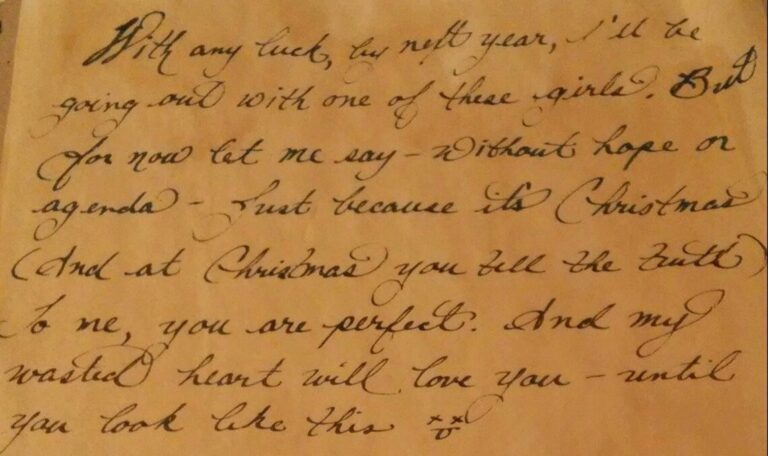 With any luck, by next year, I'll be
going out with one of these girls. But
for now let me say - without hope or
agenda - Just because it's Christmas
(And at Christmas you tell the truth)
To me, you are perfect. And my
wasted heart will love you - until
you look like this